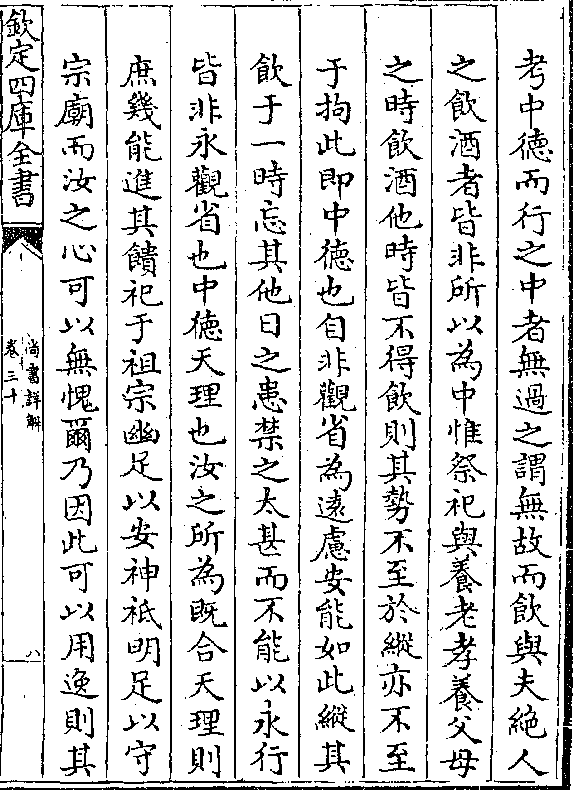 考中德而行之中者無過之謂無故而飲與夫絶人
之飲酒者皆非所以為中惟祭祀與養老孝養父母
之時飲酒他時皆不得飲則其勢不至於縱亦不至
于拘此即中德也自非觀省為遠慮安能如此縱其
飲于一時忘其他日之患禁之太甚而不能以永行
皆非永觀省也中德天理也汝之所為既合天理則
庶幾能進其饋祀于祖宗幽足以安神祇明足以守
宗廟而汝之心可以無愧爾乃因此可以用逸則其
欽定四庫全書
尚書詳解
卷三十
八